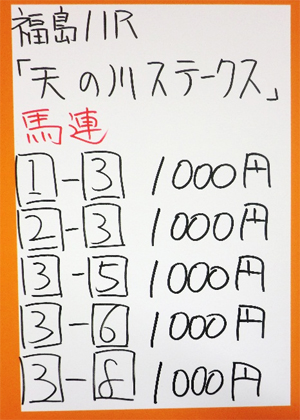 福島11R
「天の川ステークス」
馬連
1-3 1000円
2-3 1000円
3-5 1000円
3-6 1000円
3-8 1000円